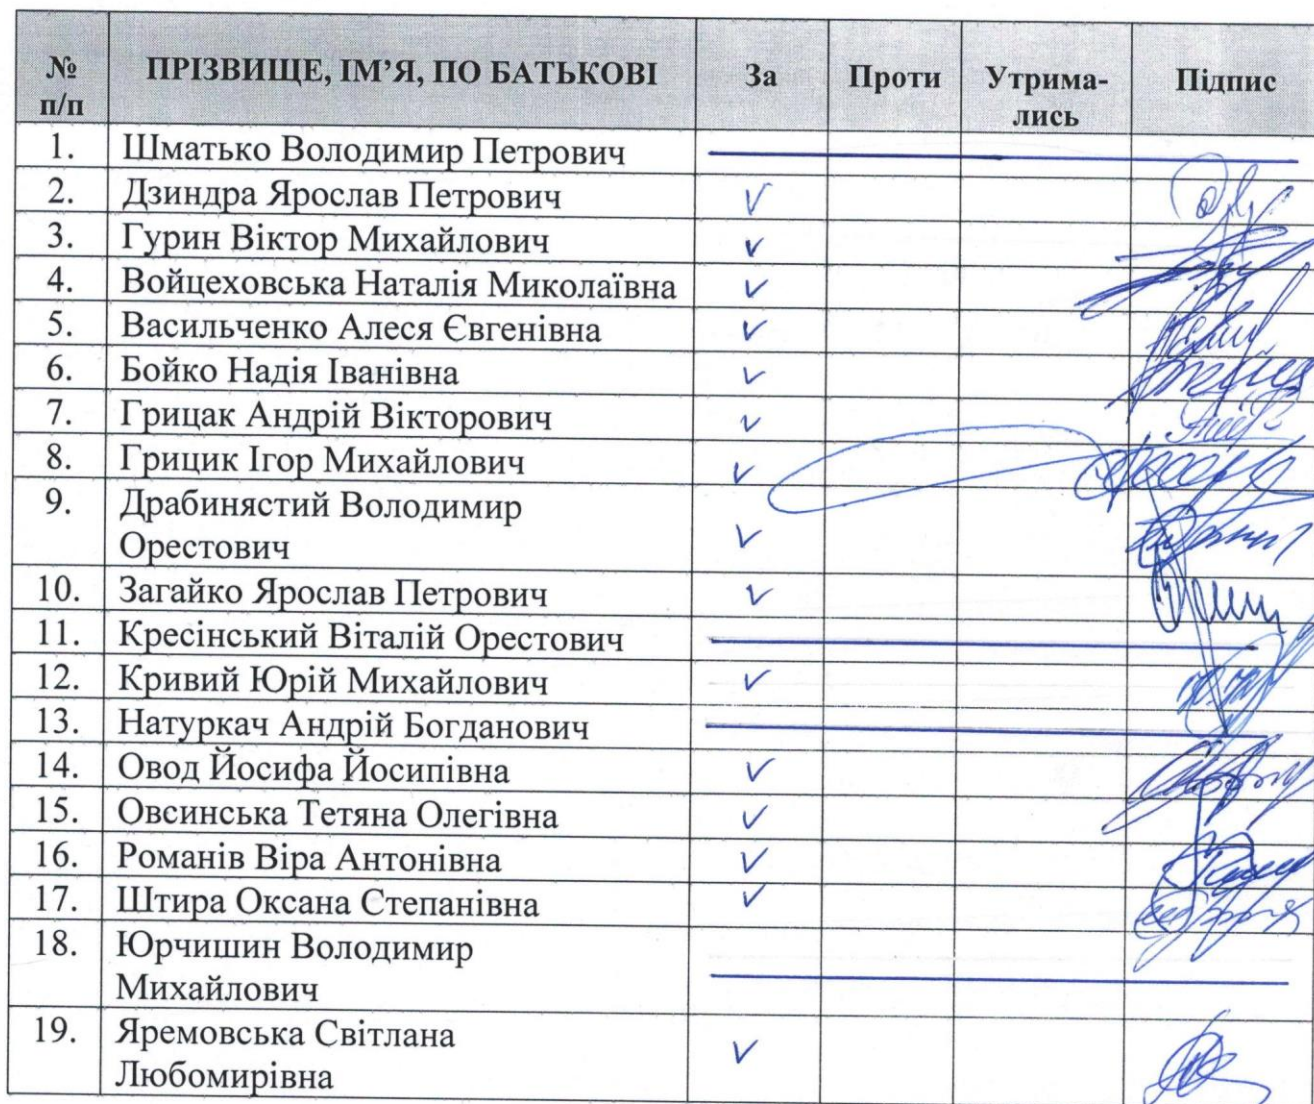 № п/п ПРІЗВИЩЕ, ІМ’Я, ПО БАТЬКОВІ За Проти Утрима-лись Підпис
1. Шматько Володимир Петрович
2. Дзиндра Ярослав Петрович V
3. Гурин Віктор Михайлович V
4. Войцеховська Наталія Миколаївна V
5. Васильченко Алеся Євгенівна V
6. Бойко Надія Іванівна V
7. Грицак Андрій Вікторович V
8. Грицик Ігор Михайлович V
9. Драбинястий Володимир
Орестович V
10. Загайко Ярослав Петрович V
11. Кресінський Віталій Орестович
12. Кривий Юрій Михайлович V
13. Натуркач Андрій Богданович
14. Овод Йосифа Йосипівна V
15. Овсинська Тетяна Олегівна V
16. Романів Віра Антонівна V
17. Штира Оксана Степанівна V
18. Юрчишин Володимир
Михайлович
19. Яремовська Світлана
Любомирівна V